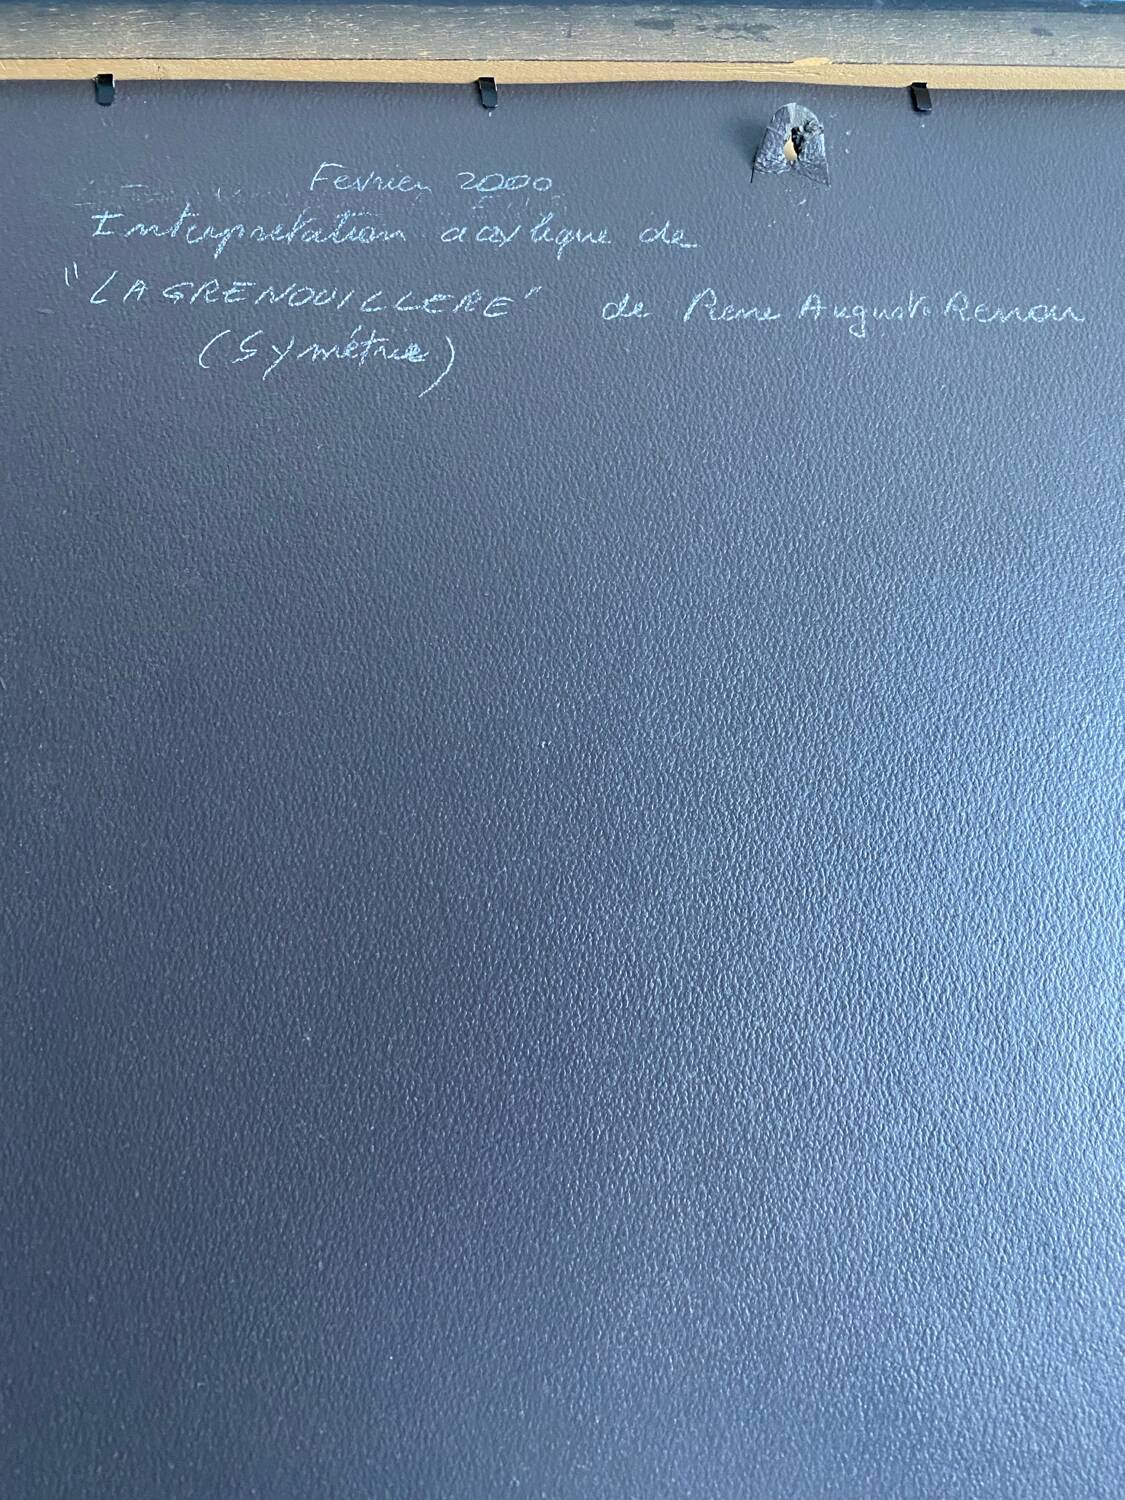 Fevrier 2000
Interpretation acrylique de
"LA GRENOUILLERE" de Pierre Auguste Renoir
(Symétrie)